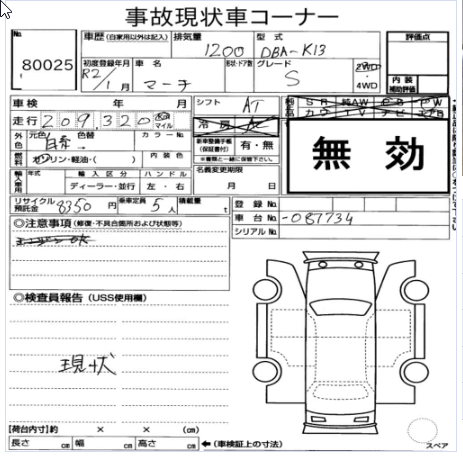 事故現状車コーナー
No.
80025
車歴 (自家用以外は記入)
排気量
1200
型式
DBA-K13
評価点
初度登録年月
R2/1月
車名
マーチ
形状・ドア数
グレード
S
2WD・4WD
内装補助評価
車検 年 月
シフト
AT
走行 209,320 km マイル
冷房 AC
外色
元色
白
色替
カラーNo.
新車整備手帳(保証書付) 有・無
※書類と一緒に保管下さい。
燃料
ガソリン・軽油・( )
内装色
無効
輸入車用
年式
輸入区分
ディーラー・並行
ハンドル
左・右
名義変更期限
月 日
リサイクル預託金
8350円
乗車定員
5人
積載量
t
登録No.
車台No.
-087734
シリアルNo.
◎注意事項 (修復・不具合箇所および状態等)
エンジンOK
◎検査員報告 (USS使用欄)
現状
[荷台内寸]約 × × (cm)
長さ cm 幅 cm 高さ cm ←(車検証上の寸法)
スペア